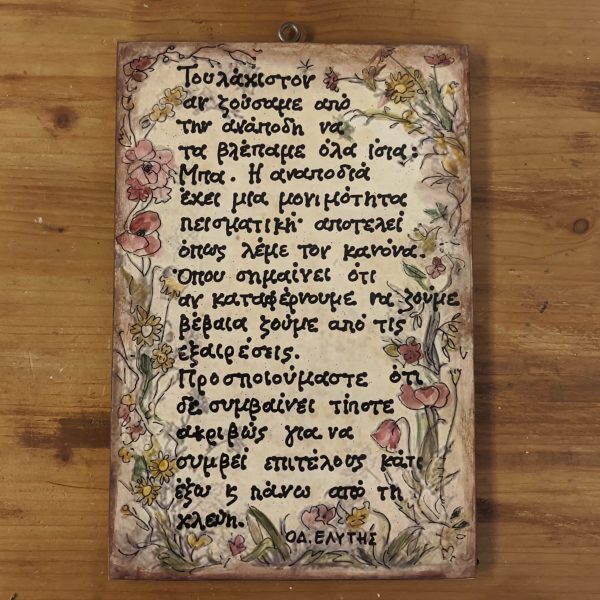 Τουλάχιστον
αν ζούσαμε από
την ανάποδη να
τα βλέπαμε όλα ίσια:
Μπα. Η αναποδιά
έχει μια μονιμότητα
πεισματική αποτελεί
όπως λέμε τον κανόνα.
Όπου σημαίνει ότι
αν καταφέρνουμε να ζούμε
βέβαια ζούμε από τις
εξαιρέσεις.
Προσποιούμαστε ότι
δε συμβαίνει τίποτε
ακριβώς για να
συμβεί επιτέλους κάτι
έξω ϛ πάνω από τη
χλεύη.
ΟΔ. ΕΛΥΤΗΣ